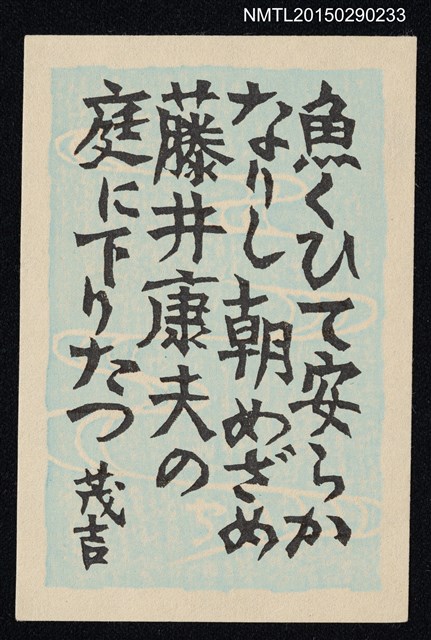 NMTL20150290233
魚くひて安らか
なりし朝めざめ
藤井康夫の
庭に下りたつ
茂吉